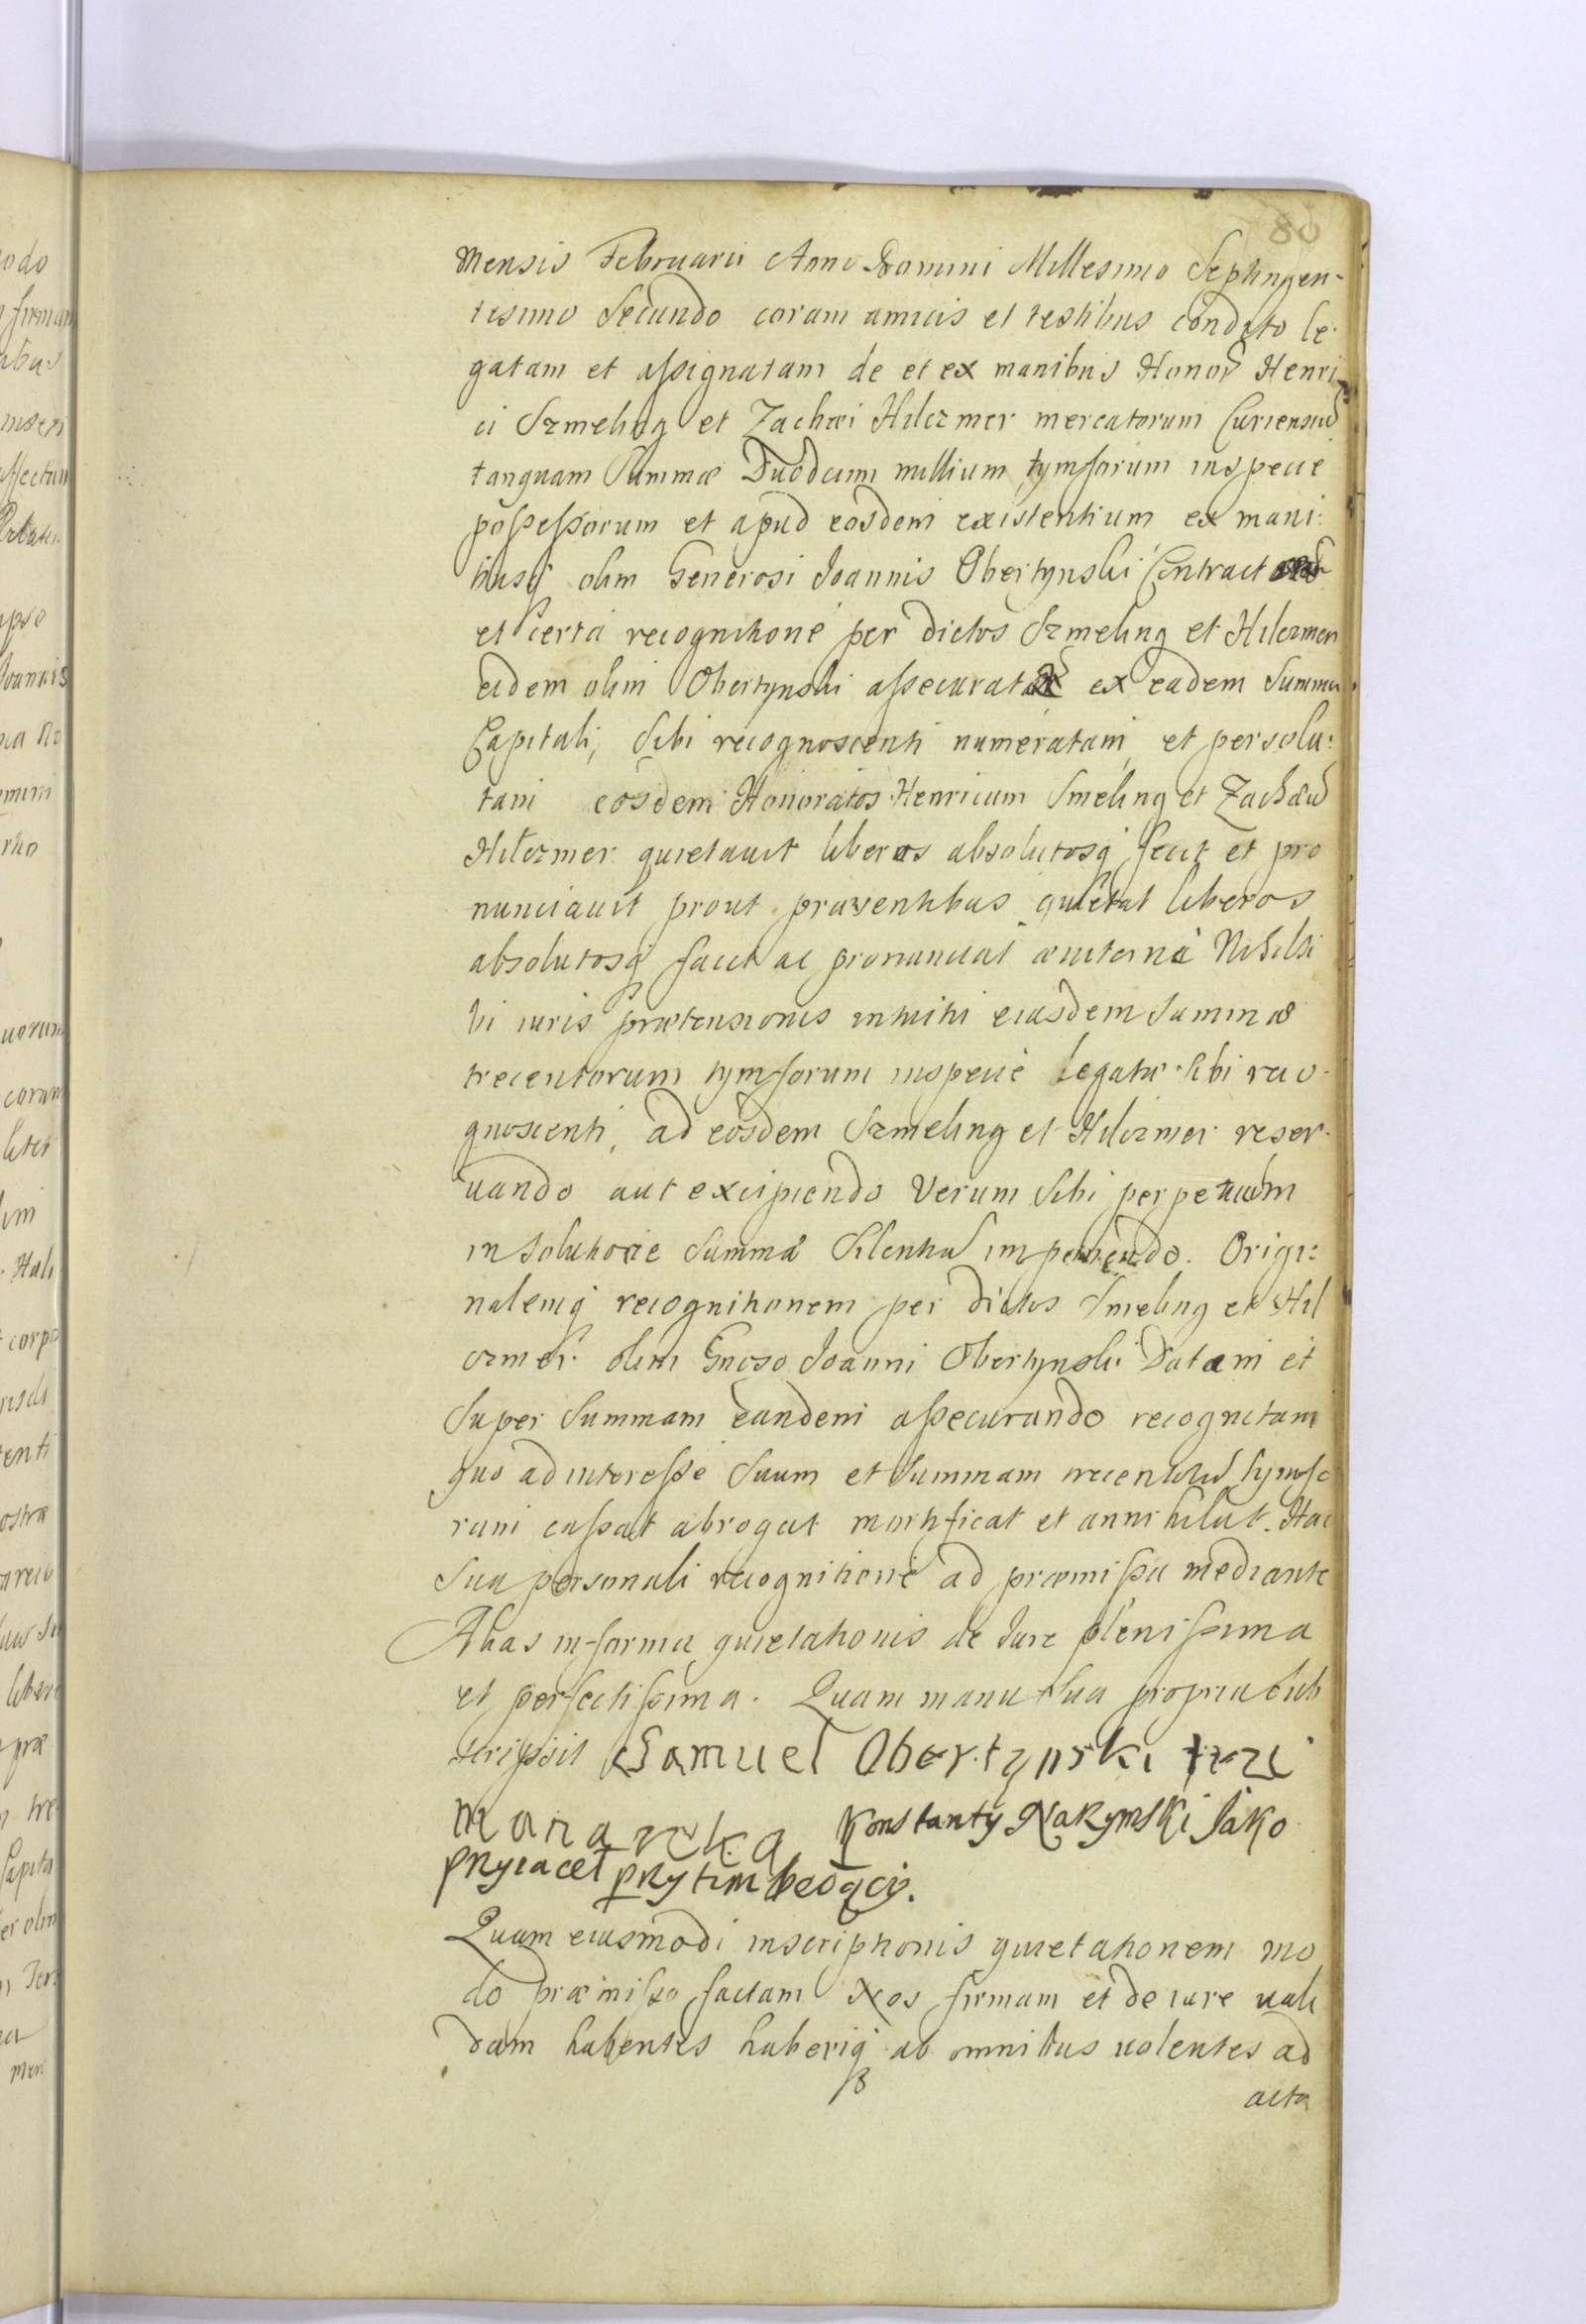 80
Mensis Februarii Anno Domini Millesimo Septingen-
tesimo Secundo coram amicis et testibus condito le-
gatam et assignatam de et ex manibus Honor Henri
ci Szmeling et Zachæi Hilczmer mercatorum Curiensiu
tanquam Summæ Duodecim millium tymforum inspecie
possessorum et apud eosdem existentium ex mani:
busq olim Generosi Joannis Obertynski Contract
et certa recognitione per dictos Szmeling et Hilczmer
eidem olim Obertynski assecurata ex eadem Summa
Capitali, Sibi recognoscenti numeratam et persolu:
tam eosdem Honoratos Henricum Smeling et Zachæu
Hilczmer quietauit liberos absolutosq fecit et pro
nunciauit prout præsentibus quietat liberos
absolutosq facit ac pronunciat æuiterne Nihil si
bi iuris prætensionis intuitu eiusdem Summæ
trecentorum tymforum inspecie legatæ sibi reco-
gnoscenti, ad eosdem Szmeling et Hilczmer reser-
uando aut excipiendo Verum Sibi perpetuum
in Solutione Summa Silentiu imponendo. Origi:
nalemq recognitionem per dictos Smeling et Hil
czmer olim Gnoso Joanni Obertynski Datam et
Super Summam eandem assecurando recognitam
quo ad interesse Suum et Summam trecentoru tymfo
rum cassat abrogat mortificat et annihilat. Hac
Sua personali recognitione ad præmissa mediante
Alias in forma quietationis de Jure plenissima
et perfectissima. Quam manu Sua propria Sub
scripsit Samuel Obertynski
Konstanty Jako
Pryiaceł prytim bedący.
Quam eiusmodi inscriptionis quietationem mo
do præmisso factam Nos firmam et de iure uali
dam habentes haberiq ab omnibus uolentes ad
acta